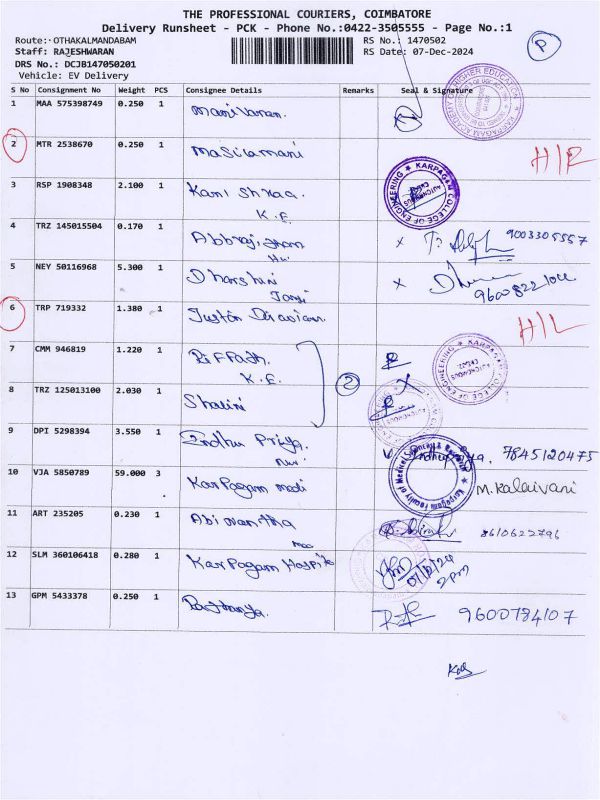 THE PROFESSIONAL COURIERS, COIMBATORE
Delivery Runsheet - PCK - Phone No.:0422-3505555 - Page No.:1
Route:-OTHAKALMANDABAM RS No.: 1470502
Staff: RAJESHWARAN RS Date: 07-Dec-2024
DRS No.: DCJB147050201
Vehicle: EV Delivery
P
S No Consignment No Weight PCS Consignee Details Remarks Seal & Signature
1 MAA 575398749 0.250 1 Manivanan.
KARPAGAM ACADEMY OF HIGHER EDUCATION
2 MTR 2538670 0.250 1 Masilamani
3 RSP 1908348 2.100 1 Kani
K.E
KARPAGAM COLLEGE OF ENGINEERING
AUTONOMOUS
4 TRZ 145015504 0.170 1 x 9003305557
5 NEY 50116968 5.300 1 Dharshini x
6 TRP 719332 1.380 1 Justin
7 CMM 946819 1.220 1 Riffadh
K.E.
2
KARPAGAM COLLEGE OF ENGINEERING
AUTONOMOUS
8 TRZ 125013100 2.030 1 Shalini
9 DPI 5298394 3.550 1 Indhu Priya. 7845120475
10 VJA 5850789 59.000 3 Karpagam medi M. Kalaivani
Karpagam Faculty of Medical Sciences & Research
11 ART 235205 0.230 1 8610622796
12 SLM 360106418 0.280 1 Karpagam Hospita 07/12/24
2pm
13 GPM 5433378 0.250 1 9600784107